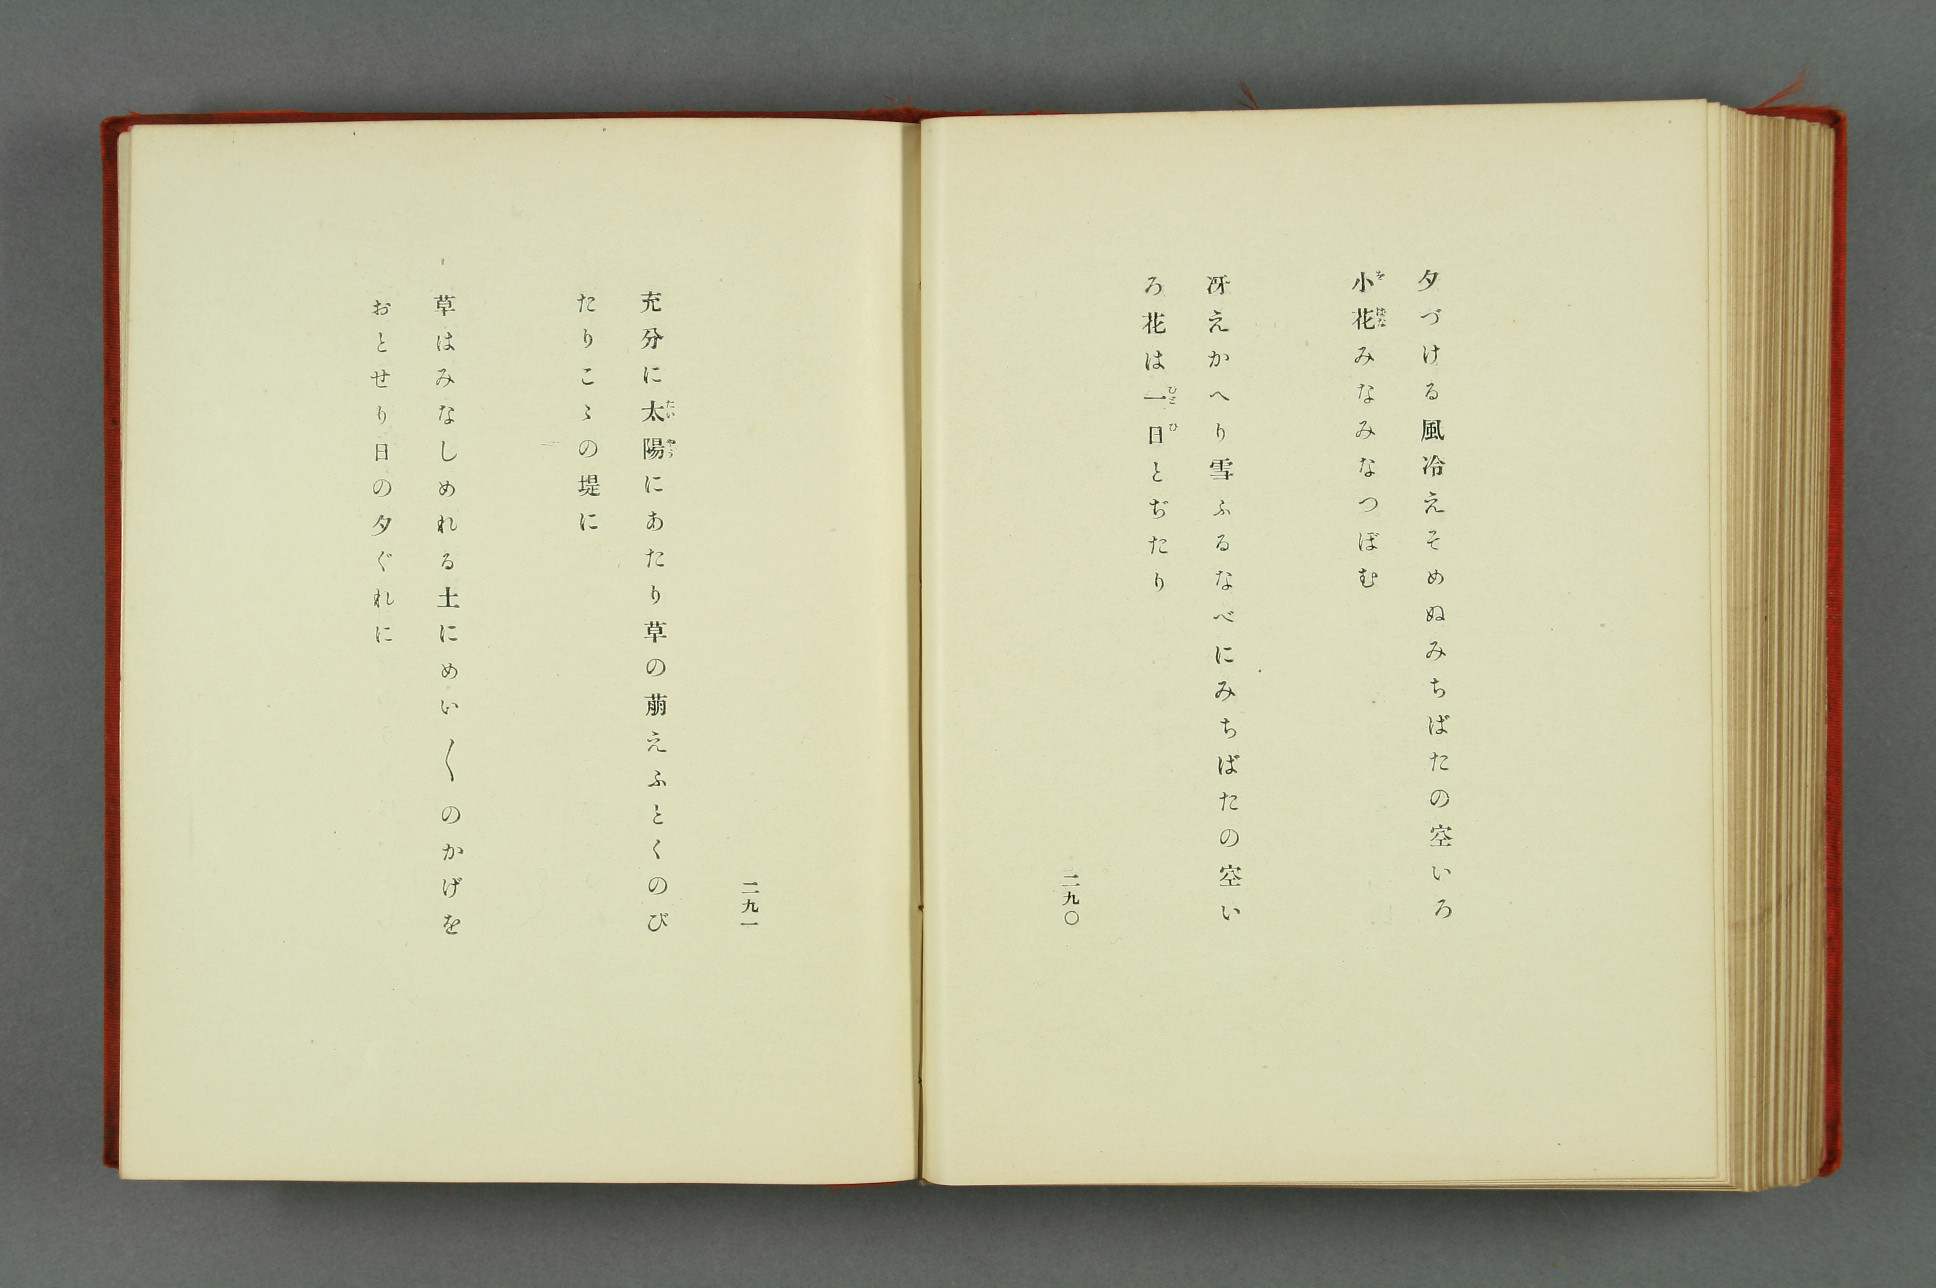 夕づける風冷えそめぬみちばたの空いろ
小花みなみなつぼむ
冴えかへり雪ふるなべにみちばたの空い
ろ花は一日とぢたり
二九〇
二九一
充分に太陽にあたり草の萠えふとくのび
たりこゝの堤に
草はみなしめれる土にめい〳〵のかげを
おとせり日の夕ぐれに